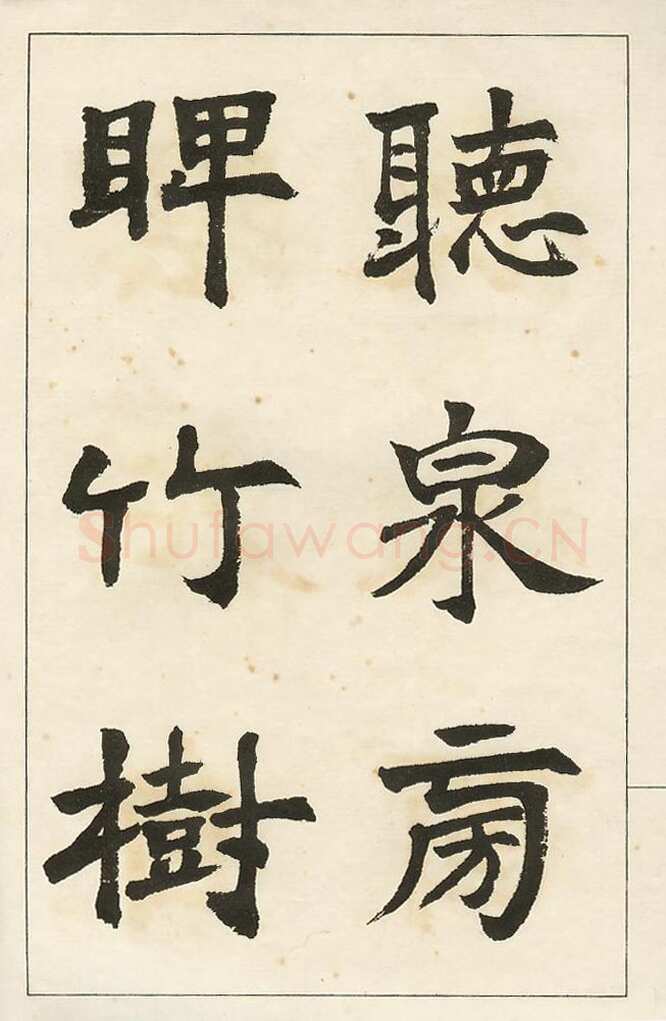 聽泉
睥竹樹
Shufawang.CN